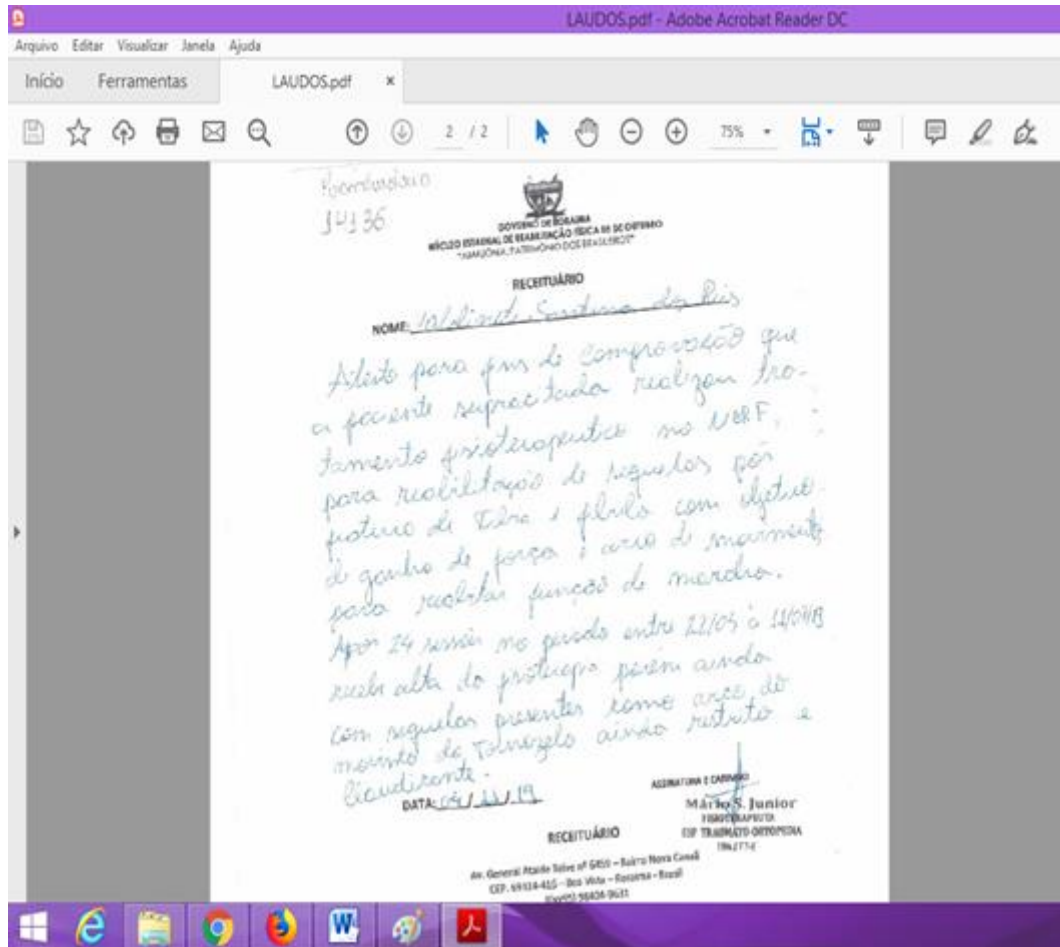 LAUDOS.pdf - Adobe Acrobat Reader DC
Arquivo Editar Visualizar Janela Ajuda
Início Ferramentas LAUDOS.pdf ×
2 / 2 75%
14136
GOVERNO DE RORAIMA
NÚCLEO ESTADUAL DE REABILITAÇÃO FÍSICA 05 DE OUTUBRO
"AMAZÔNIA, PATRIMÔNIO DOS BRASILEIROS"
RECEITUÁRIO
NOME: Santana dos Reis
Atesto para fins de comprovação que
a paciente supracitada realizou tra-
tamento fisioterapeutico no NERF,
para reabilitação de sequelas pós
fratura de Tibia e fíbula com objetivo
de ganho de força e arco de movimento
para reabilitar função de marcha.
Após 24 sessões no período entre 22/05 à
recebe alta da fisioterapia porém ainda
com sequelas presentes como arco de
movimento do Tornozelo ainda restrito e
Claudicante.
ASSINATURA E CARIMBO
DATA: 04/11/19
Mário S. Junior
FISIOTERAPEUTA
ESP TRAUMATO-ORTOPEDIA
RECEITUÁRIO
Av. General Ataíde Teive nº – Bairro Nova Canaã
CEP. – Boa Vista – Roraima – Brasil
W